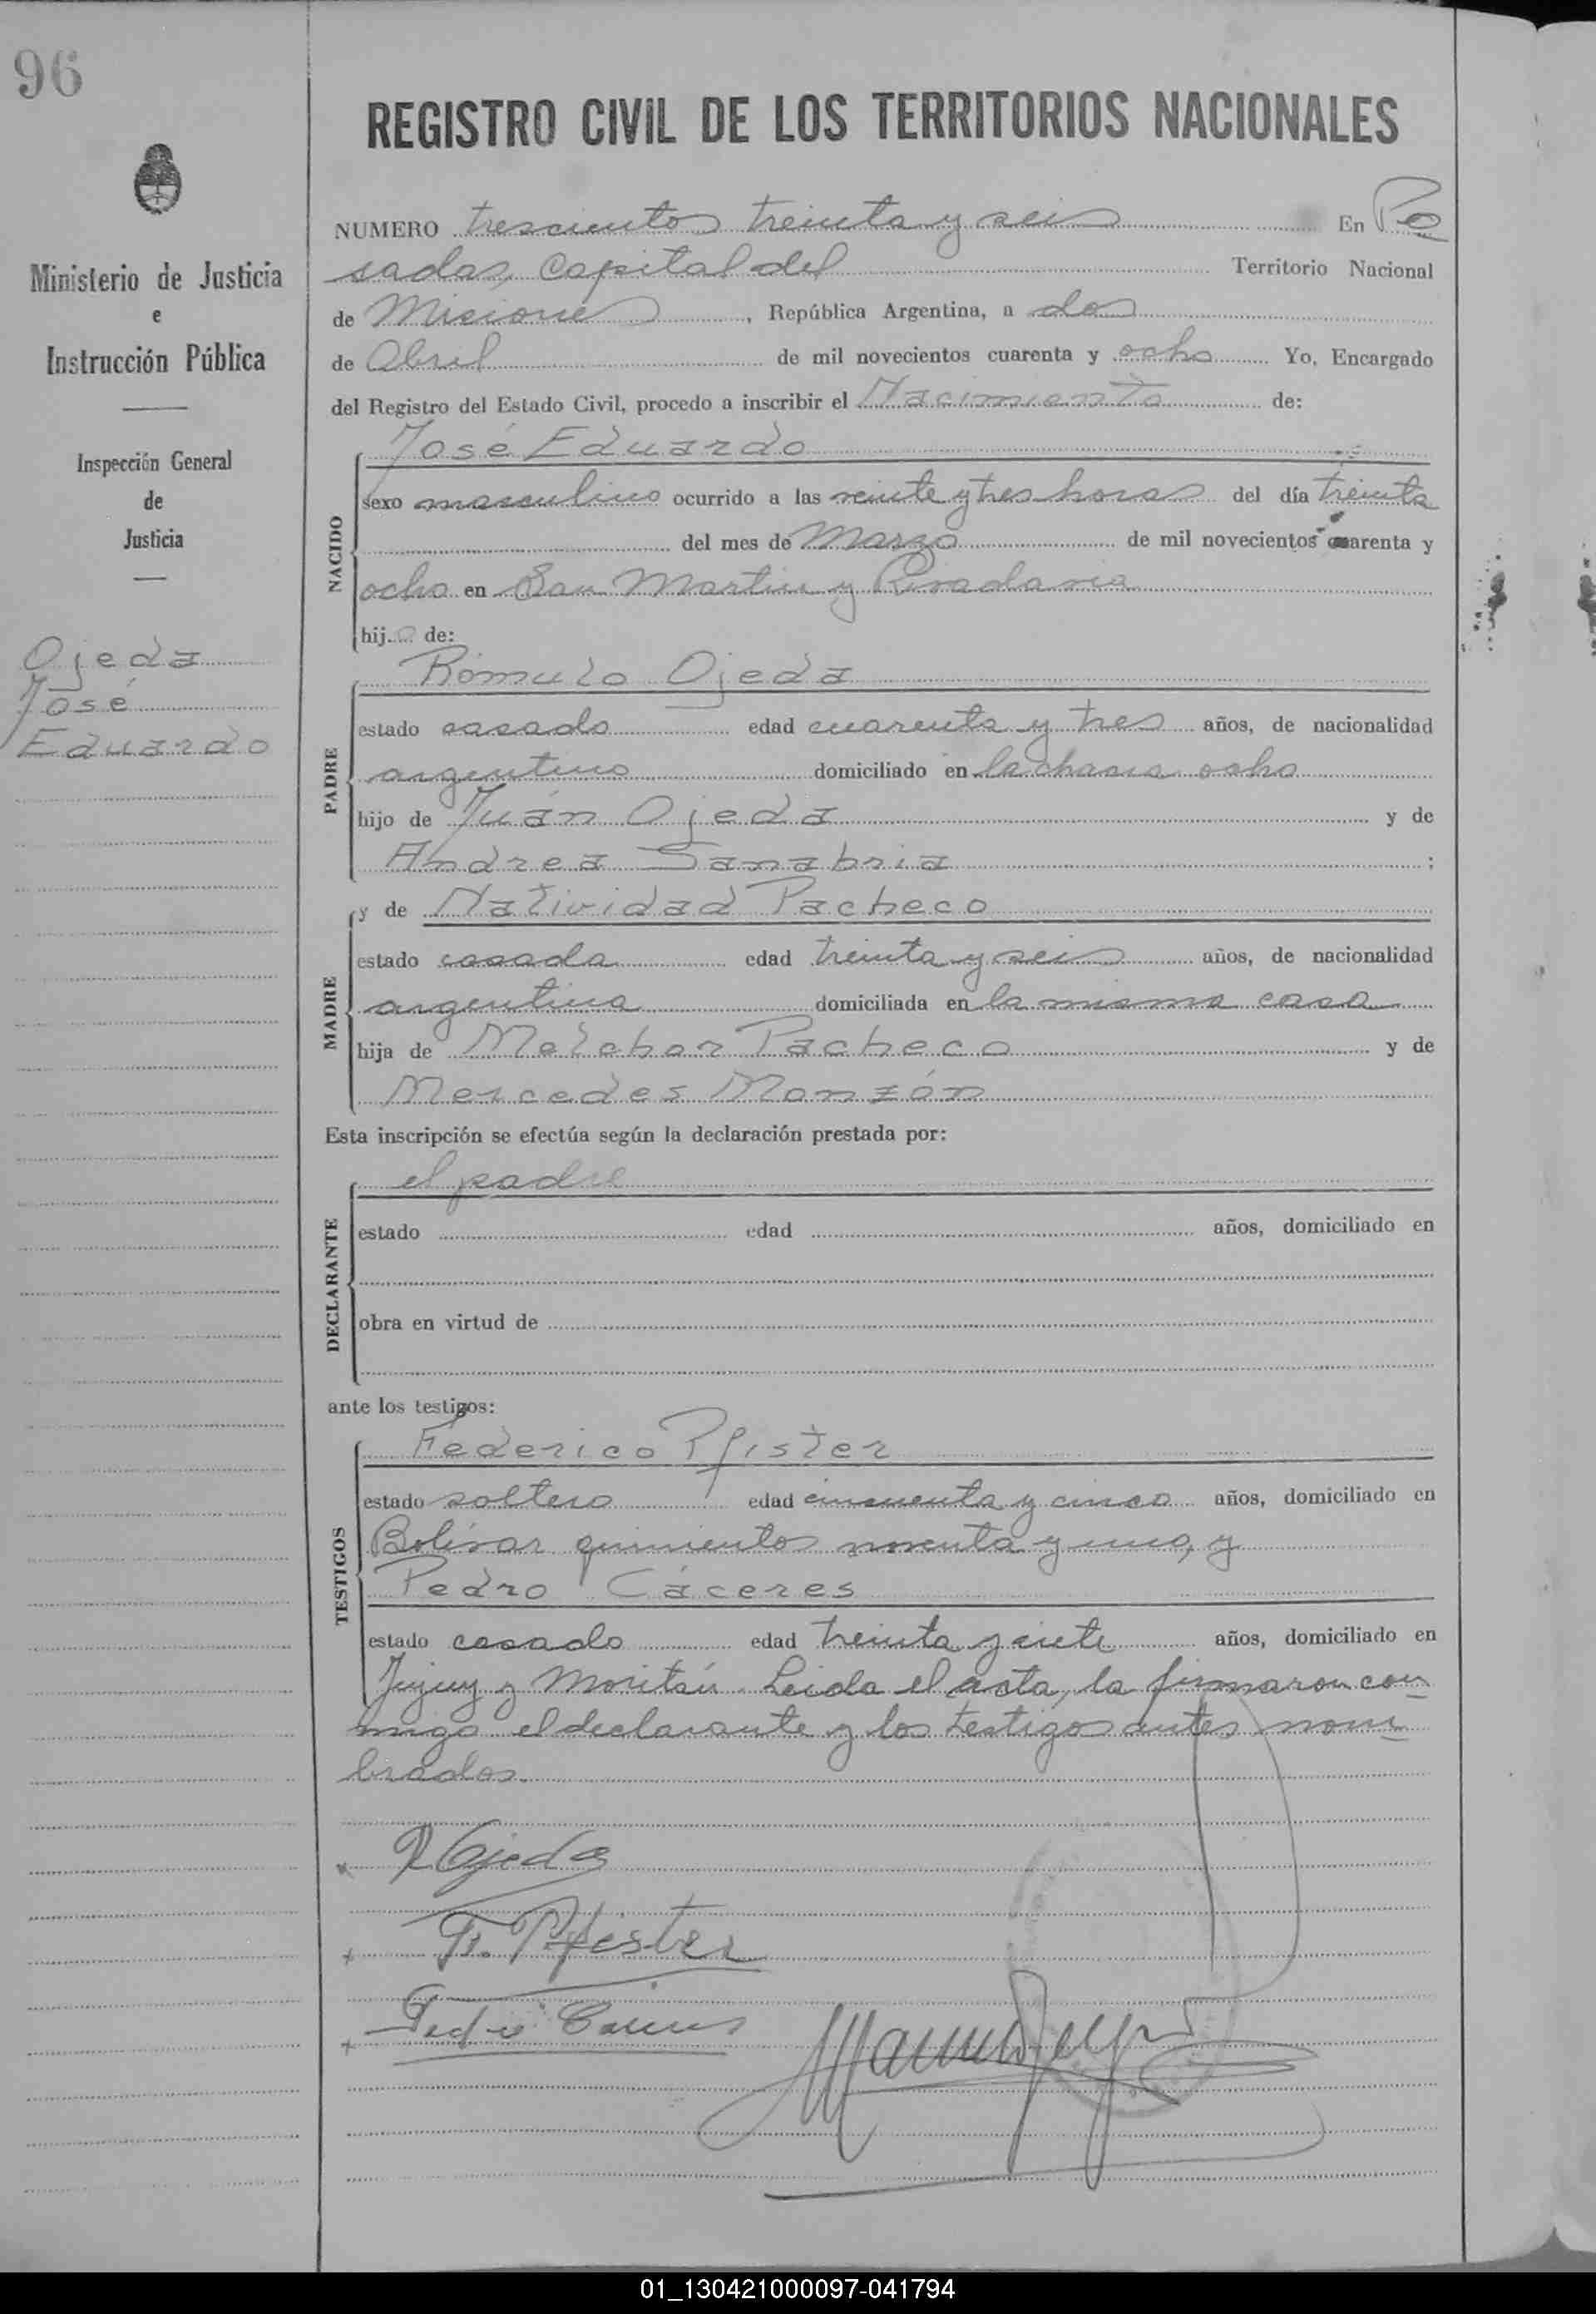 96
REGISTRO CIVIL DE LOS TERRITORIOS NACIONALES
Ministerio de Justicia
e
Instrucción Pública
Inspección General
de
Justicia
Ojeda
José
Eduardo
NUMERO trescientos treinta y seis En Po
sadas, Capital del Territorio Nacional
de Misiones, República Argentina, a dos
de Abril de mil novecientos cuarenta y ocho Yo, Encargado
del Registro del Estado Civil, procedo a inscribir el Nacimiento de:
NACIDO
José Eduardo
sexo masculino ocurrido a las veinte y tres horas del día treinta
del mes de Marzo de mil novecientos cuarenta y
ocho en San Martin y Rivadavia
hijo de:
PADRE
Rómulo Ojeda
estado casado edad cuarenta y tres años, de nacionalidad
argentino domiciliado en la chacra ocho
hijo de Juán Ojeda y de
Andrea Sanabria ;
MADRE
y de Natividad Pacheco
estado casada edad treinta y seis años, de nacionalidad
argentina domiciliada en la misma casa
hija de Melchor Pacheco y de
Mercedes Monzón
Esta inscripción se efectúa según la declaración prestada por:
DECLARANTE
el padre
estado edad años, domiciliado en
obra en virtud de
ante los testigos:
TESTIGOS
Federico Pfister
estado soltero edad cincuenta y cinco años, domiciliado en
Bolívar quinientos noventa y uno, y
Pedro Cáceres
estado casado edad treinta y siete años, domiciliado en
Jujuy y Moritán. Leida el acta, la firmaron con
migo el declarante y los testigos antes nom
brados.
R Ojeda
F. Pfister
Pedro Cáceres
01_130421000097-041794